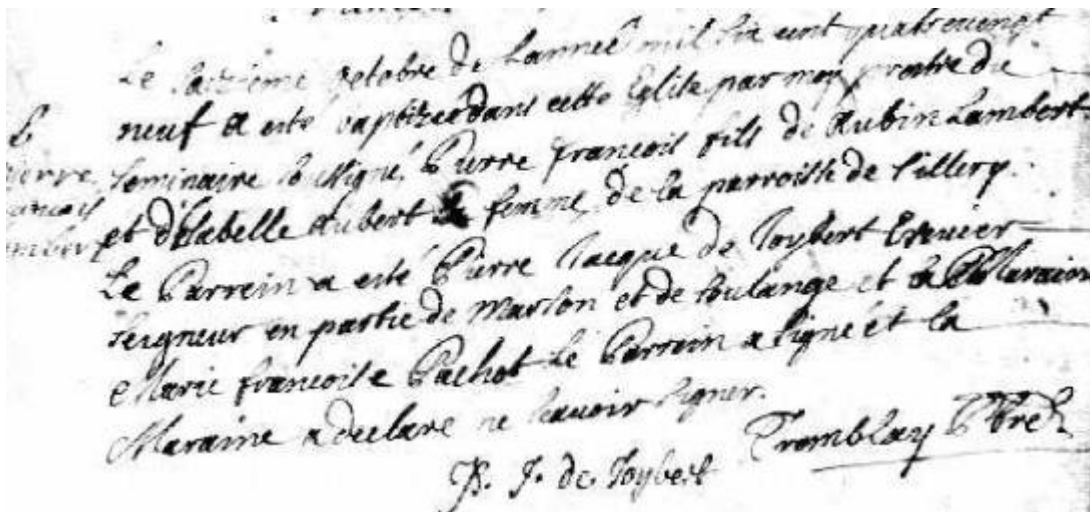 B
Pierre
francois
Lambert
Le saizième octobre de Lanneé mil six cent quatrevingt
neuf a esté baptizé dans cette Eglise par moy prestre du
Seminaire soussigné Pierre francois fils de Aubin Lambert
et d'Elisabelle Aubert sa femme de la parroisse de Sillery.
Le Parrein a esté Pierre Jacque de Joybert Escuier
seigneur en partie de Marson et de soulange et la Maraine
Marie francoise Pachot Le Parrein a signé et la
Maraine a declare ne scavoir signer.
P. J. de Joybert
Tremblay Pbre